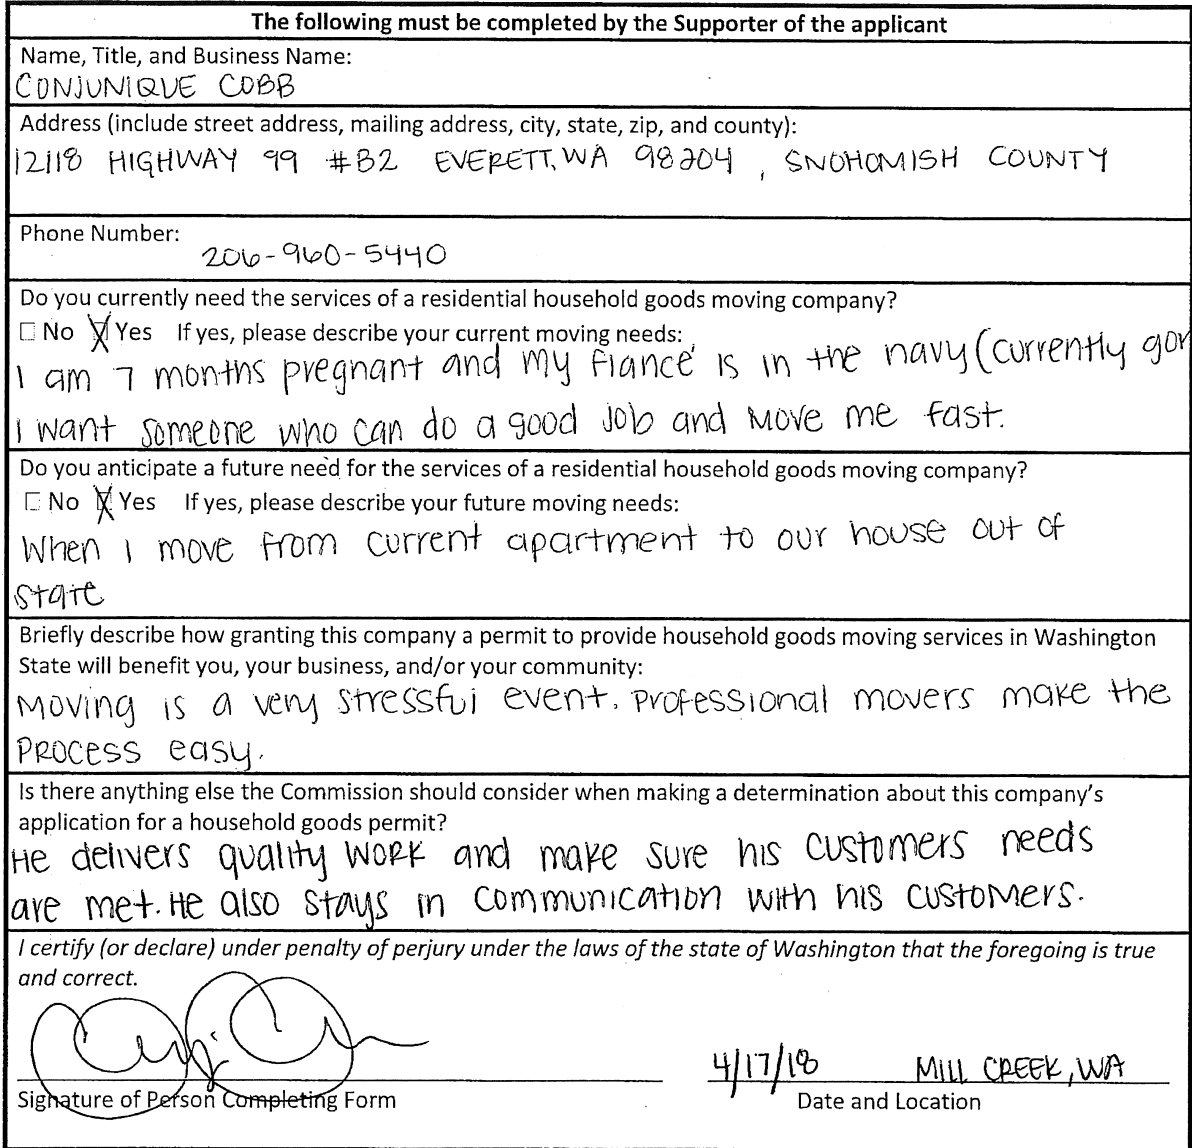 The following must be completed by the Supporter of the applicant
Name, Title, and Business Name:
CONJUNIQUE COBB
Address (include street address, mailing address, city, state, zip, and county):
12118 HIGHWAY 99 #B2 EVERETT, WA 98204, SNOHOMISH COUNTY
Phone Number:
206-960-5440
Do you currently need the services of a residential household goods moving company?
No Yes If yes, please describe your current moving needs:
I am 7 months pregnant and my fiancé is in the navy (currently gon
I want someone who can do a good job and move me fast.
Do you anticipate a future need for the services of a residential household goods moving company?
No Yes If yes, please describe your future moving needs:
When I move from current apartment to our house out of
state
Briefly describe how granting this company a permit to provide household goods moving services in Washington
State will benefit you, your business, and/or your community:
Moving is a very stressful event. Professional movers make the
process easy.
Is there anything else the Commission should consider when making a determination about this company's
application for a household goods permit?
He delivers quality work and make sure his customers needs
are met. He also stays in communication with his customers.
I certify (or declare) under penalty of perjury under the laws of the state of Washington that the foregoing is true
and correct.
4/17/18 MILL CREEK, WA
Signature of Person Completing Form Date and Location